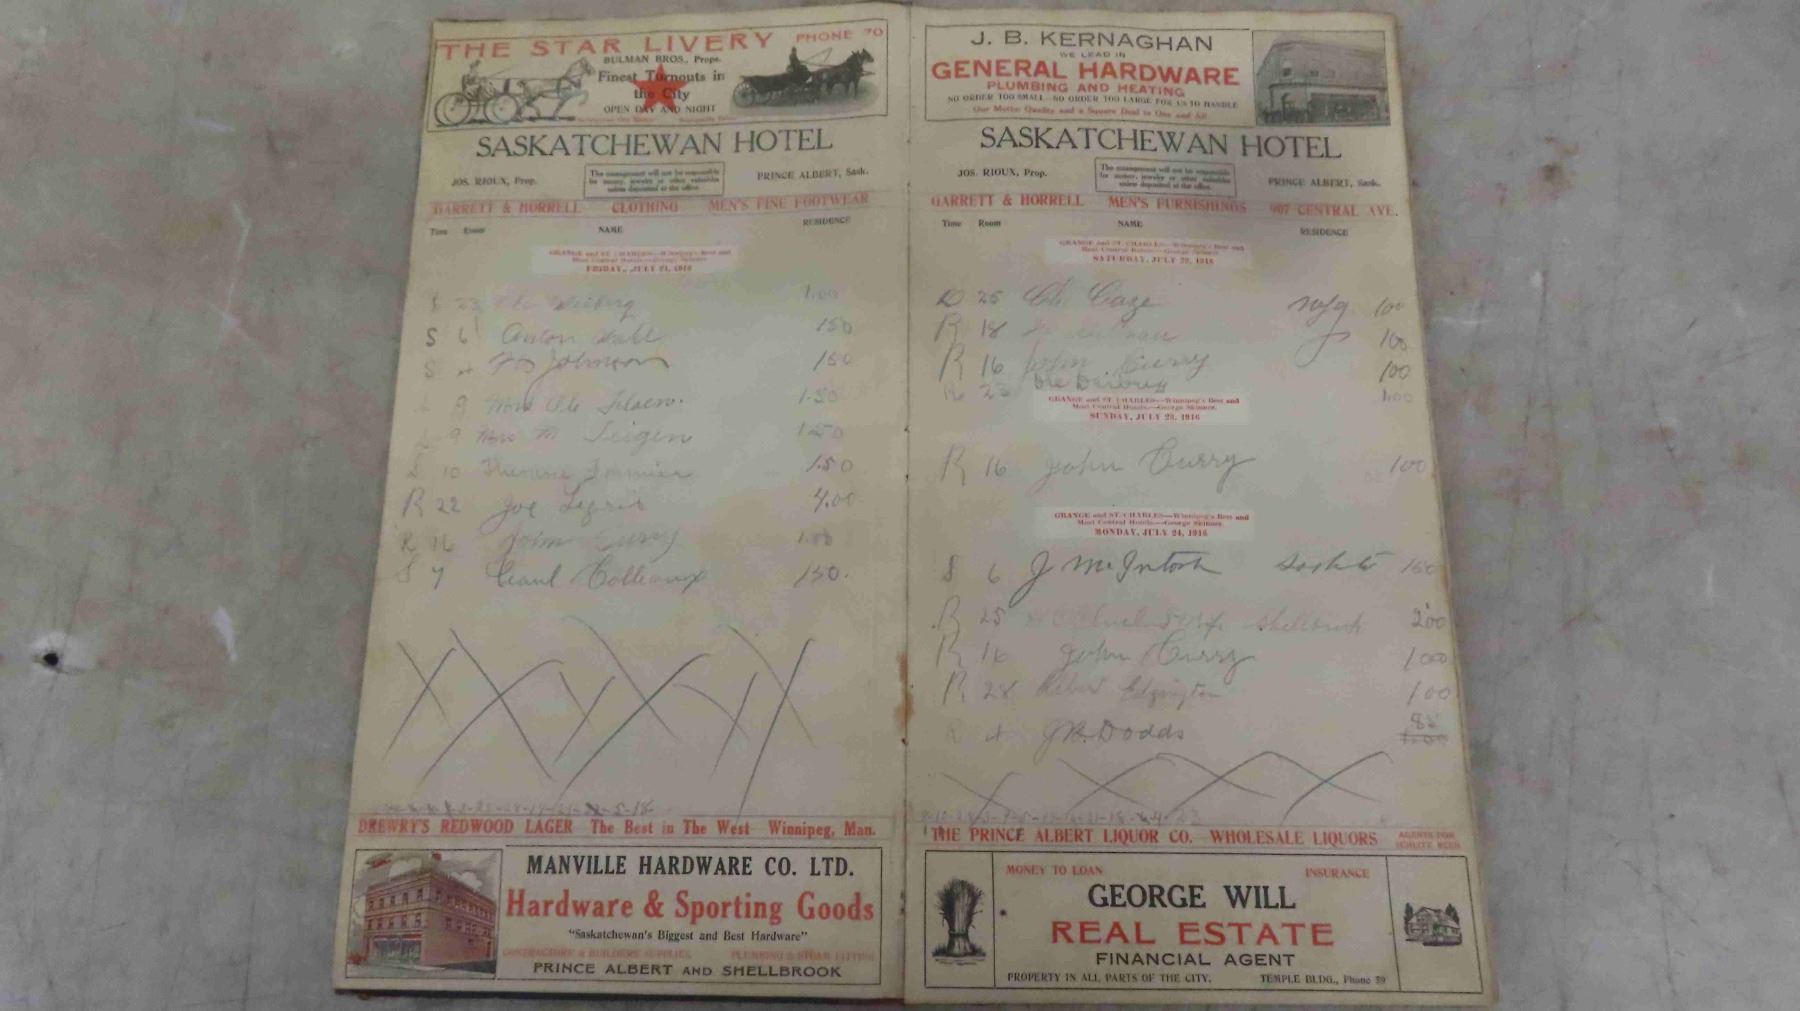 THE STAR LIVERY PHONE 70
BULMAN BROS., Props.
Finest Turnouts in
the City
OPEN DAY AND NIGHT
SASKATCHEWAN HOTEL
JOS. RIOUX, Prop.
The management will not be responsible
for money, jewelry or other valuables
unless deposited at the office.
PRINCE ALBERT, Sask.
GARRETT & HORRELL CLOTHING MEN'S FINE FOOTWEAR
Time Room NAME RESIDENCE
GRANGE and ST. CHARLES—Winnipeg's Best and
Most Central Hotels—George Skinner.
FRIDAY, JULY 21, 1916
S 23 1.00
S 6 Anton 150
S 4 Johnson 150
9 Mrs Ole 1.50
9 Mrs M Teigen 150
S 10 1.50
R 22 Joe Legris 4.00
R 16 John Curry 1.00
S 7 150.
DREWRY'S REDWOOD LAGER The Best in The West Winnipeg, Man.
MANVILLE HARDWARE CO. LTD.
Hardware & Sporting Goods
"Saskatchewan's Biggest and Best Hardware"
CONTRACTORS' & BUILDERS SUPPLIES PLUMBING & STEAM FITTING
PRINCE ALBERT AND SHELLBROOK
J. B. KERNAGHAN
WE LEAD IN
GENERAL HARDWARE
PLUMBING AND HEATING
NO ORDER TOO SMALL—NO ORDER TOO LARGE FOR US TO HANDLE
Our Motto: Quality and a Square Deal to One and All
SASKATCHEWAN HOTEL
JOS. RIOUX, Prop.
The management will not be responsible
for money, jewelry or other valuables
unless deposited at the office.
PRINCE ALBERT, Sask.
GARRETT & HORRELL MEN'S FURNISHINGS 907 CENTRAL AVE.
Time Room NAME RESIDENCE
GRANGE and ST. CHARLES—Winnipeg's Best and
Most Central Hotels—George Skinner.
SATURDAY, JULY 22, 1916
R 25 100
R 18 100
R 16 John Curry 100
R 23 1.00
GRANGE and ST. CHARLES—Winnipeg's Best and
Most Central Hotels—George Skinner.
SUNDAY, JULY 23, 1916
R 16 John Curry 100
GRANGE and ST. CHARLES—Winnipeg's Best and
Most Central Hotels—George Skinner.
MONDAY, JULY 24, 1916
S 6 J McIntosh 150
R 25 Shellbrook 200
R 16 John Curry 1000
R 28 Edgington 100
R 4 J B. Dodds
THE PRINCE ALBERT LIQUOR CO. WHOLESALE LIQUORS AGENTS FOR
SCHLITZ BEER
MONEY TO LOAN INSURANCE
GEORGE WILL
REAL ESTATE
FINANCIAL AGENT
PROPERTY IN ALL PARTS OF THE CITY. TEMPLE BLDG., Phone 39